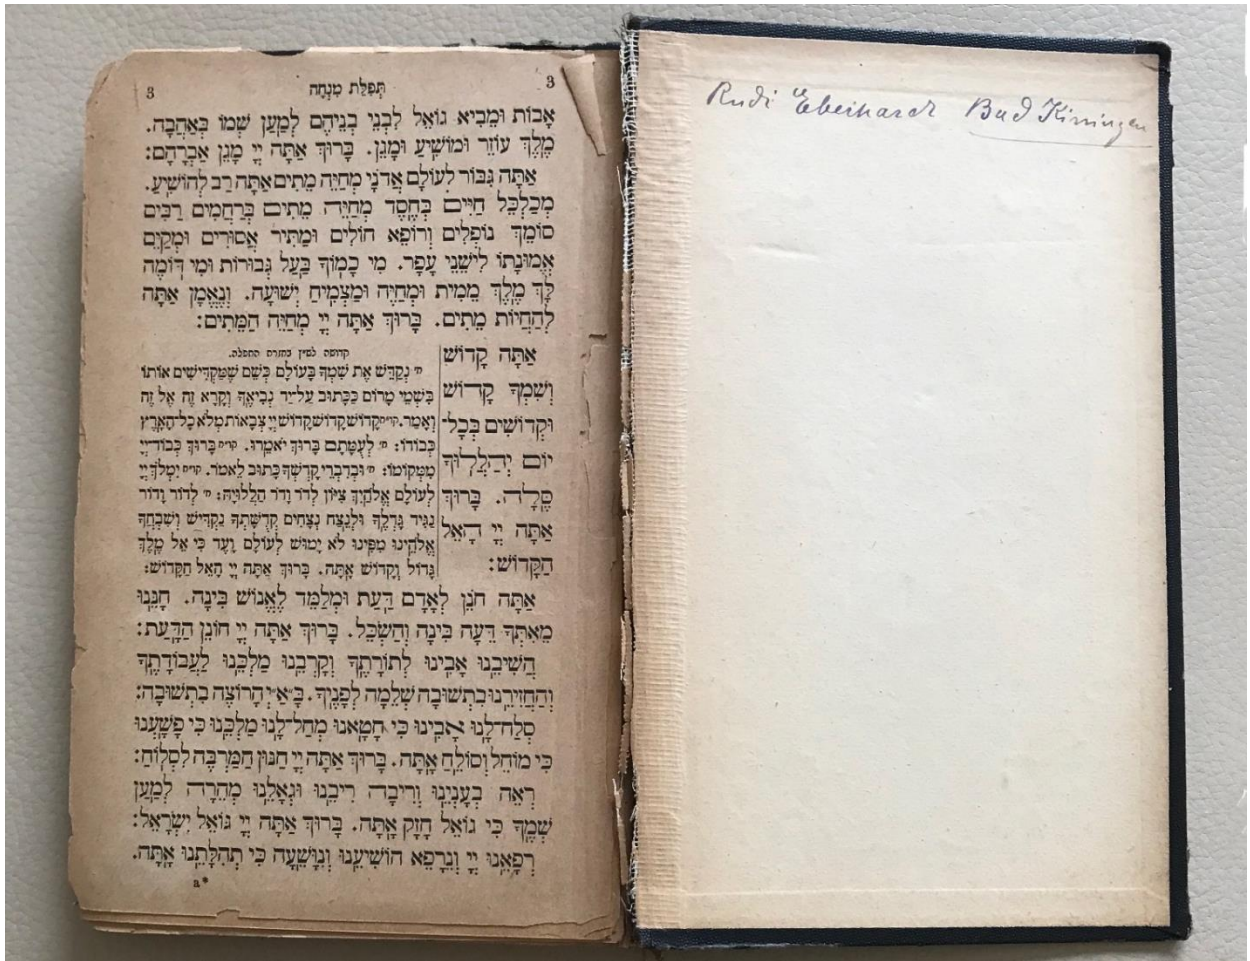 Rudi Eberhard Bad Kissingen
3 תְּפִלַּת מִנְחָה 3
אָבוֹת וּמֵבִיא גוֹאֵל לִבְנֵי בְנֵיהֶם לְמַעַן שְׁמוֹ בְּאַהֲבָה.
מֶלֶךְ עוֹזֵר וּמוֹשִׁיעַ וּמָגֵן. בָּרוּךְ אַתָּה יְיָ מָגֵן אַבְרָהָם:
אַתָּה גִּבּוֹר לְעוֹלָם אֲדֹנָי מְחַיֵּה מֵתִים אַתָּה רַב לְהוֹשִׁיעַ.
מְכַלְכֵּל חַיִּים בְּחֶסֶד מְחַיֵּה מֵתִים בְּרַחֲמִים רַבִּים
סוֹמֵךְ נוֹפְלִים וְרוֹפֵא חוֹלִים וּמַתִּיר אֲסוּרִים וּמְקַיֵּם
אֱמוּנָתוֹ לִישֵׁנֵי עָפָר. מִי כָמוֹךָ בַּעַל גְּבוּרוֹת וּמִי דּוֹמֶה
לָּךְ מֶלֶךְ מֵמִית וּמְחַיֶּה וּמַצְמִיחַ יְשׁוּעָה. וְנֶאֱמָן אַתָּה
לְהַחֲיוֹת מֵתִים. בָּרוּךְ אַתָּה יְיָ מְחַיֵּה הַמֵּתִים:
אַתָּה קָדוֹשׁ
וְשִׁמְךָ קָדוֹשׁ
וּקְדוֹשִׁים בְּכָל־
יוֹם יְהַלְלוּךָ
סֶּלָה. בָּרוּךְ
אַתָּה יְיָ הָאֵל
הַקָּדוֹשׁ:
קדושה לש״ץ בחזרת התפלה.
ח׳ נְקַדֵּשׁ אֶת שִׁמְךָ בָּעוֹלָם כְּשֵׁם שֶׁמַּקְדִּישִׁים אוֹתוֹ
בִּשְׁמֵי מָרוֹם כַּכָּתוּב עַל־יַד נְבִיאֶךָ וְקָרָא זֶה אֶל זֶה
וְאָמַר. קו״ח קָדוֹשׁ קָדוֹשׁ קָדוֹשׁ יְיָ צְבָאוֹת מְלֹא כָל־הָאָרֶץ
כְּבוֹדוֹ: ח׳ לְעֻמָּתָם בָּרוּךְ יֹאמֵרוּ. קו״ח בָּרוּךְ כְּבוֹד־יְיָ
מִמְּקוֹמוֹ: ח׳ וּבְדִבְרֵי קָדְשְׁךָ כָּתוּב לֵאמֹר. קו״ח יִמְלֹךְ יְיָ
לְעוֹלָם אֱלֹהַיִךְ צִיּוֹן לְדֹר וָדֹר הַלְלוּיָהּ: ח׳ לְדוֹר וָדוֹר
נַגִּיד גָּדְלֶךָ וּלְנֵצַח נְצָחִים קְדֻשָּׁתְךָ נַקְדִּישׁ וְשִׁבְחֲךָ
אֱלֹהֵינוּ מִפִּינוּ לֹא יָמוּשׁ לְעוֹלָם וָעֶד כִּי אֵל מֶלֶךְ
גָּדוֹל וְקָדוֹשׁ אָתָּה. בָּרוּךְ אַתָּה יְיָ הָאֵל הַקָּדוֹשׁ:
אַתָּה חוֹנֵן לְאָדָם דַּעַת וּמְלַמֵּד לֶאֱנוֹשׁ בִּינָה. חָנֵּנוּ
מֵאִתְּךָ דֵּעָה בִּינָה וְהַשְׂכֵּל. בָּרוּךְ אַתָּה יְיָ חוֹנֵן הַדָּעַת:
הֲשִׁיבֵנוּ אָבִינוּ לְתוֹרָתֶךָ וְקָרְבֵנוּ מַלְכֵּנוּ לַעֲבוֹדָתֶךָ
וְהַחֲזִירֵנוּ בִּתְשׁוּבָה שְׁלֵמָה לְפָנֶיךָ. בָּ״אַ״יְ הָרוֹצֶה בִּתְשׁוּבָה:
סְלַח־לָנוּ אָבִינוּ כִּי חָטָאנוּ מְחַל־לָנוּ מַלְכֵּנוּ כִּי פָשָׁעְנוּ
כִּי מוֹחֵל וְסוֹלֵחַ אָתָּה. בָּרוּךְ אַתָּה יְיָ חַנּוּן הַמַּרְבֶּה לִסְלוֹחַ:
רְאֵה בְעָנְיֵנוּ וְרִיבָה רִיבֵנוּ וּגְאָלֵנוּ מְהֵרָה לְמַעַן
שְׁמֶךָ כִּי גוֹאֵל חָזָק אָתָּה. בָּרוּךְ אַתָּה יְיָ גּוֹאֵל יִשְׂרָאֵל:
רְפָאֵנוּ יְיָ וְנֵרָפֵא הוֹשִׁיעֵנוּ וְנִוָּשֵׁעָה כִּי תְהִלָּתֵנוּ אָתָּה.
a*